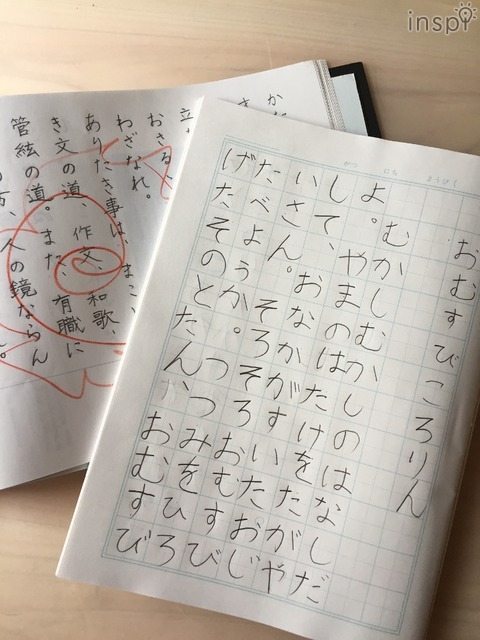 inspi
がつ にち ようび
おむすびころりん
むかしむかしのはなしだ
よ。やまのはたけをたがや
して、おなかがすいたおじ
いさん。そろそろおむすび
たべようか。つつみをひろ
げたそのとたんか おむすび
か
さ
立
おさる
わざなれ。
ありたき事は、まこ
き文の道、作文、和歌、
管絃の道。また、有職に
の方、人の鏡ならん